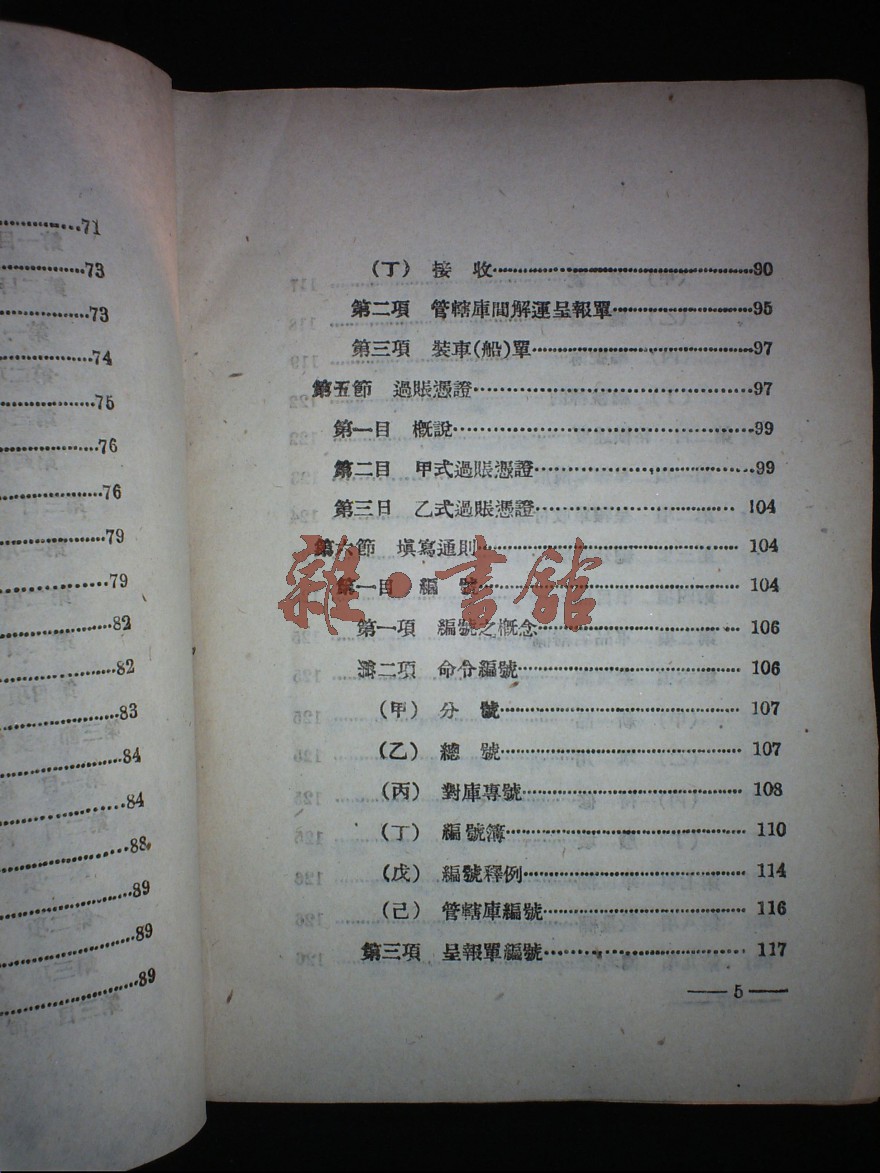 71
73
73
74
75
76
76
79
79
82
82
83
84
84
88
89
89
89
(丁) 接 收 90
第二項 管轄庫間解運呈報單 95
第三項 裝車(船)單 97
第五節 過賬憑證 97
第一目 概說 99
第二目 甲式過賬憑證 99
第三日 乙式過賬憑證 104
第六節 填寫通則 104
第一目 編 號 104
第一項 編號之概念 106
第二項 命令編號 106
(甲) 分 號 107
(乙) 總 號 107
(丙) 對庫專號 108
(丁) 編號簿 110
(戊) 編號釋例 114
(己) 管轄庫編號 116
第三項 呈報單編號 117
— 5 —
雜·書館